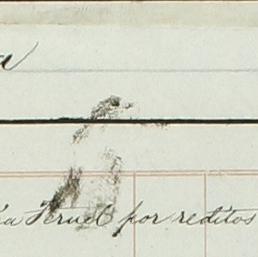 Teruel por reditos